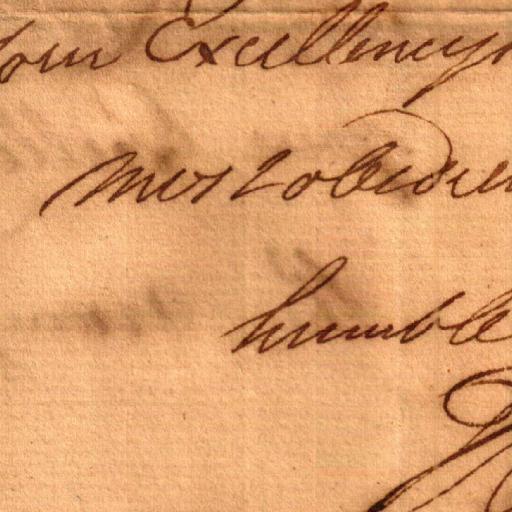 Your Excellency's
most obedien
humble